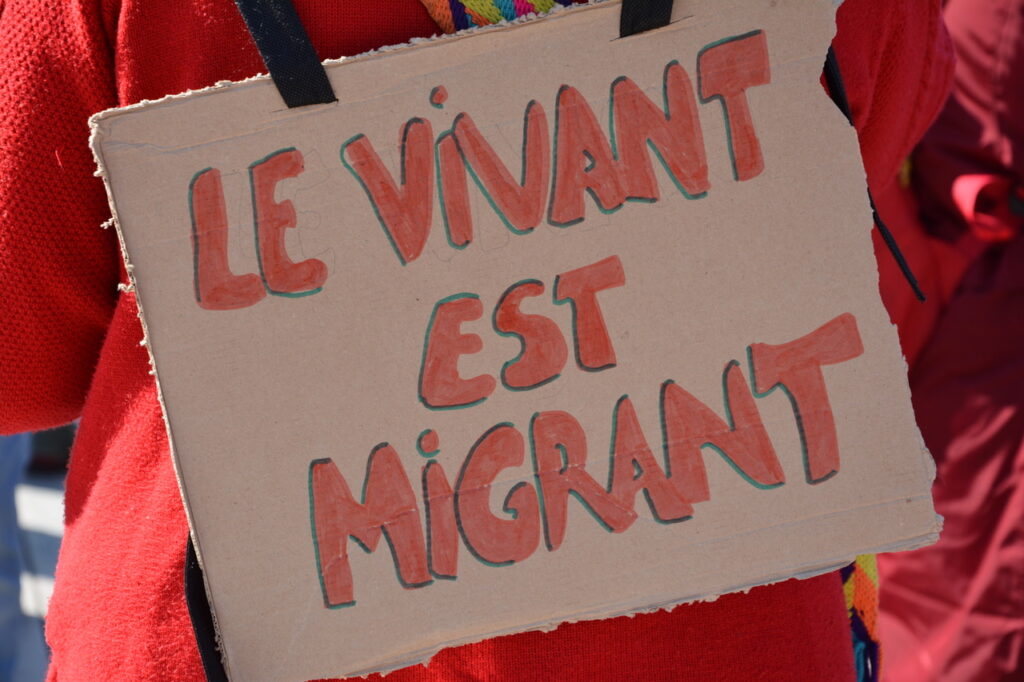 LE ViVANT
EST
MiGRANT